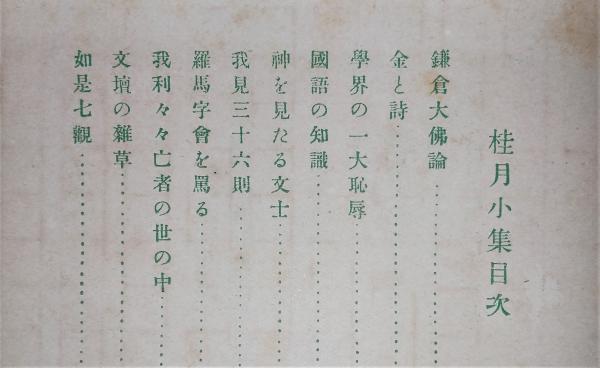 桂月小集目次
鎌倉大佛論
金と詩
學界の一大恥辱
國語の知識
神を見たる文士
我見三十六則
羅馬字會を罵る
我利々々亡者の世の中
文壇の雜草
如是七觀